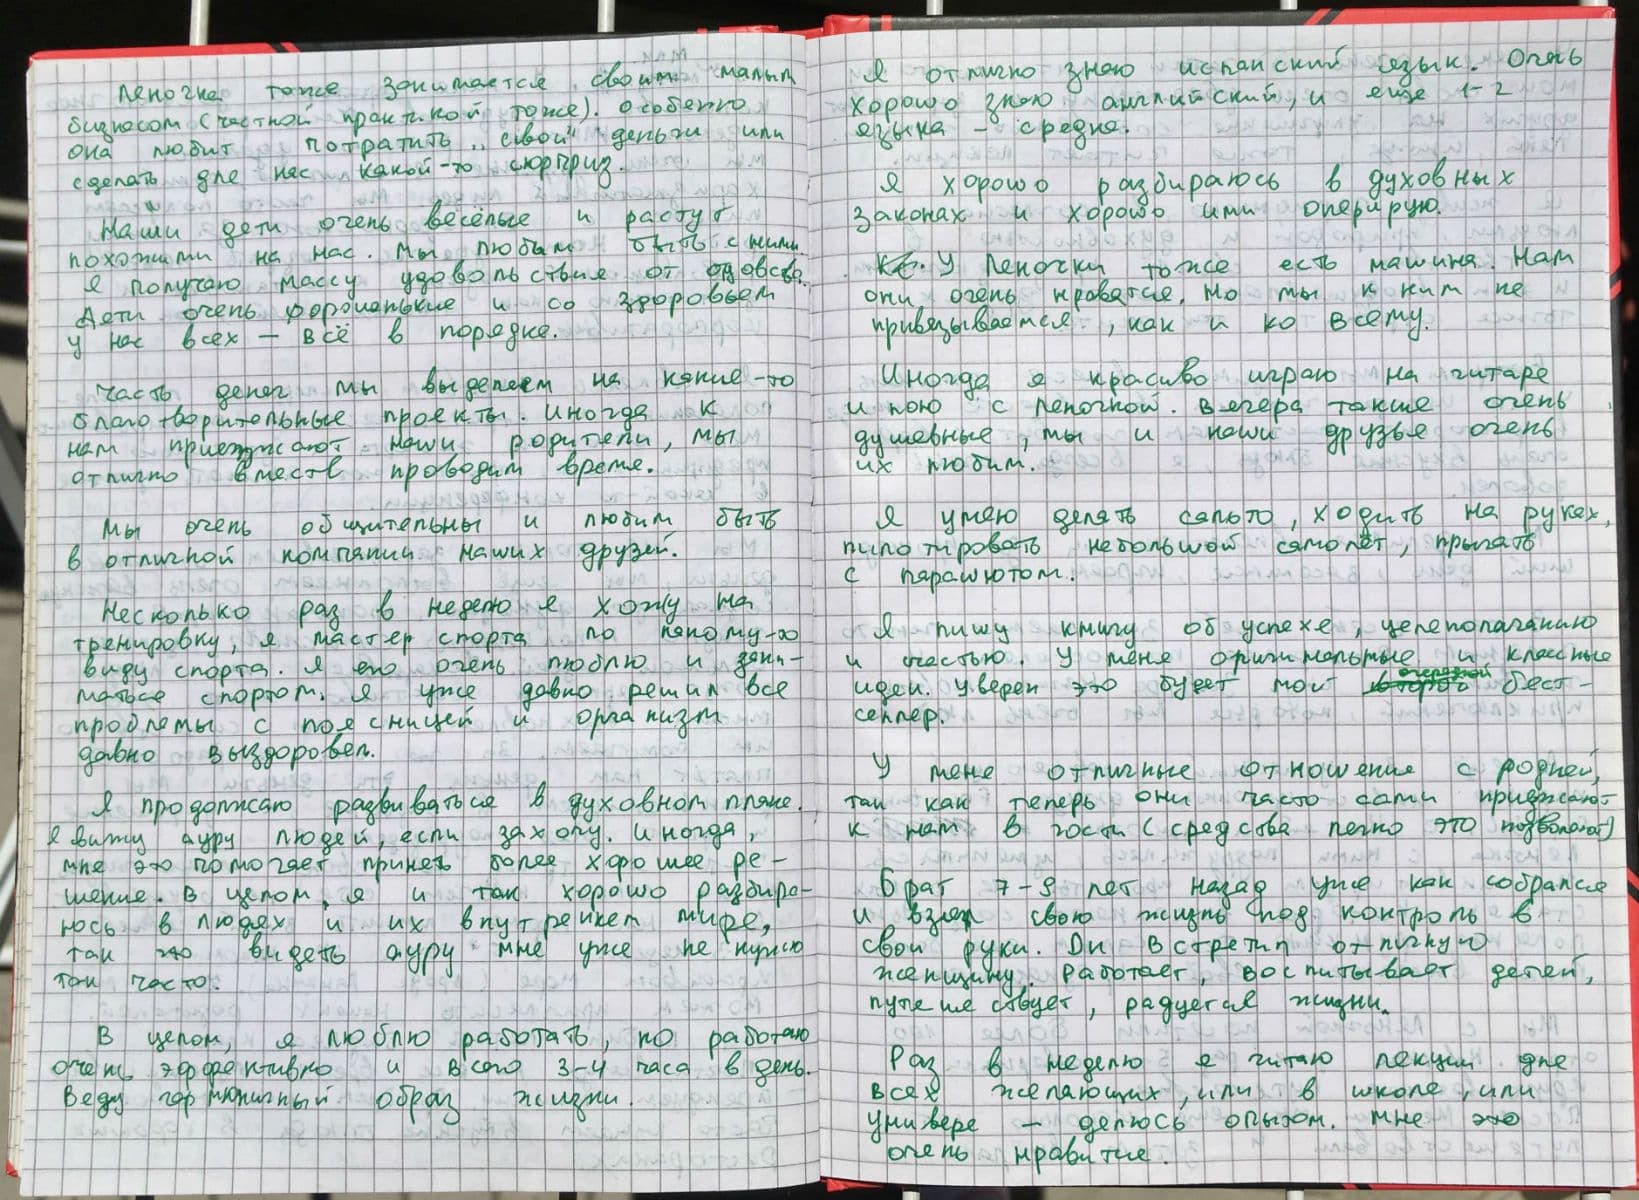 Леночка тоже занимается своим малым
бизнесом (частной практикой тоже). Особенно
она любит потратить „свои" деньги или
сделать для нас какой-то сюрприз.
Наши дети очень весёлые и растут
похожими на нас. Мы любим быть с ними.
Я получаю массу удовольствия от
Дети очень хорошенькие и со здоровьем
у нас всех – всё в порядке.
Часть денег мы выделяем на какие-то
благотворительные проекты. Иногда к
нам приезжают наши родители, мы
отлично вместе проводим время.
Мы очень общительны и любим быть
в отличной компании наших друзей.
Несколько раз в неделю я хожу на
тренировку, я мастер спорта по какому-то
виду спорта. Я его очень люблю и зани-
маться спортом. Я уже давно решил все
проблемы с поясницей и организм
давно выздоровел.
Я продолжаю развиваться в духовном плане.
Я вижу ауру людей, если захочу. Иногда,
мне это помогает принять более хорошее ре-
шение. В целом, я и так хорошо разбира-
юсь в людях и их внутреннем мире,
так что видеть ауру мне уже не нужно
так часто.
В целом, я люблю работать, но работаю
очень эффективно и всего 3-4 часа в день.
Веду гармоничный образ жизни.
Я отлично знаю испанский язык. Очень
хорошо знаю английский, и еще 1-2
языка – средне.
Я хорошо разбираюсь в духовных
законах и хорошо ими оперирую.
У Леночки тоже есть машина. Нам
они очень нравятся, но мы к ним не
привязываемся, как и ко всему.
Иногда я красиво играю на гитаре
и пою с Леночкой. Вечера такие очень
душевные, мы и наши друзья очень
их любим.
Я умею делать сальто, ходить на руках,
пилотировать небольшой самолёт, прыгать
с парашютом.
Я пишу книгу об успехе, целеполаганию
и счастью. У меня оригинальные и классные
идеи. Уверен это будет мой очередной бест-
селлер.
У меня отличные отношения с роднёй,
так как теперь они часто сами приезжают
к нам в гости (средства легко это позволяют)
Брат 7-9 лет назад уже как собрался
и взял свою жизнь под контроль в
свои руки. Он встретил отличную
женщину. Работает, воспитывает детей,
путешествует, радуется жизни.
Раз в неделю я читаю лекции для
всех желающих, или в школе, или
универе – делюсь опытом. Мне это
очень нравится.